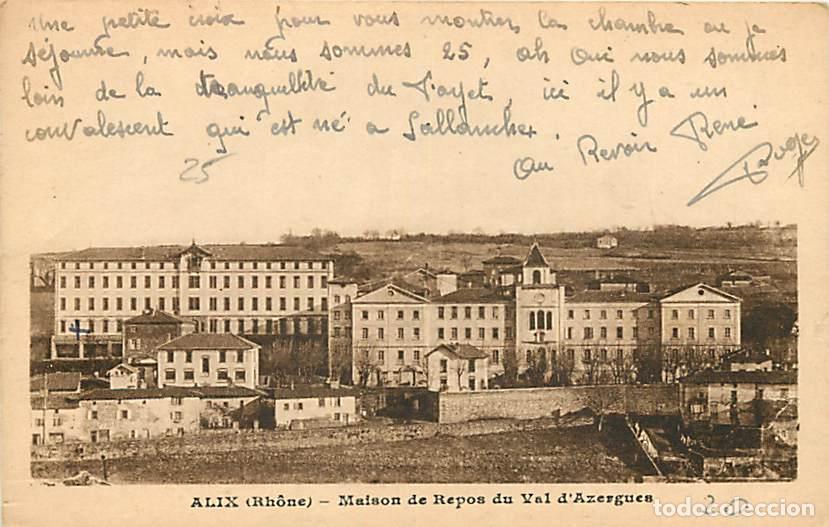 Une petite croix pour vous montrer la chambre ou je
séjourne, mais nous sommes 25, ah oui nous sommes
loin de la tranquillité du Fayet, ici il y a un
convalescent qui est né a Sallanches.
Au Revoir René
25
ALIX (Rhône) — Maison de Repos du Val d'Azergues
20
todocoleccion